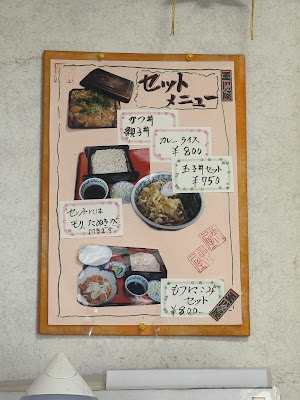 セット
メニュー
かつ丼
親子丼
カレーライス
¥800
玉子丼セット
¥750
セットには
もり たぬきが
付きます
もつにこみ
セット
¥800-